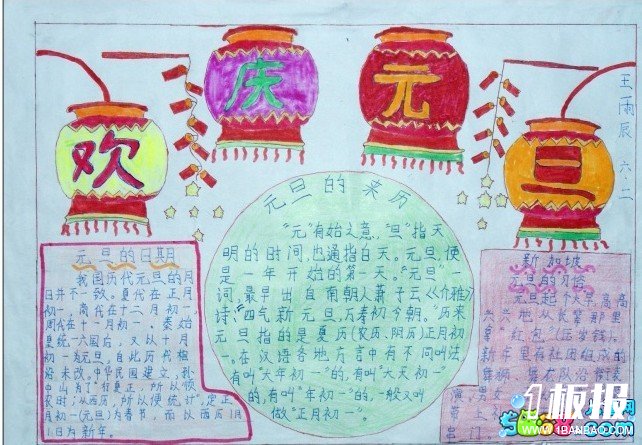 欢
庆
元
旦
王雨辰 六.二
元旦的来历
"元"有始之意,"旦"指天
明的时间,也通指白天。元旦,便
是一年开始的第一天。"元旦"一
词,最早出自南朝人萧子云《介雅》
诗:"四气新元旦,万寿初今朝。"历来
元旦指的是夏历(农历、阴历)正月初
一。在汉语各地方言中有不同叫法,
有叫"大年初一"的,有叫"大天初一"
的,有叫"年初一"的,一般又叫
做"正月初一"。
元旦的日期
我国历代元旦的月
日并不一致。夏代在正月
初一,商代在十二月初一,
周代在十一月初一。秦始
皇统一六国后,又以十月
初一为元旦,自此历代相
沿未改。中华民国建立,孙
中山为了"行夏正,所以顺
农时;从西历,所以便统计",定正
月初一(元旦)为春节,而以西历1月
1日为新年。
新加坡
元旦的习俗
元旦起个大早,高高
兴兴地从长辈那里
拿"红包"(压岁钱)。
新年里有社团组成的
舞狮、舞龙队沿街表
演,男女
1板报
WWW.1BANBAO.COM